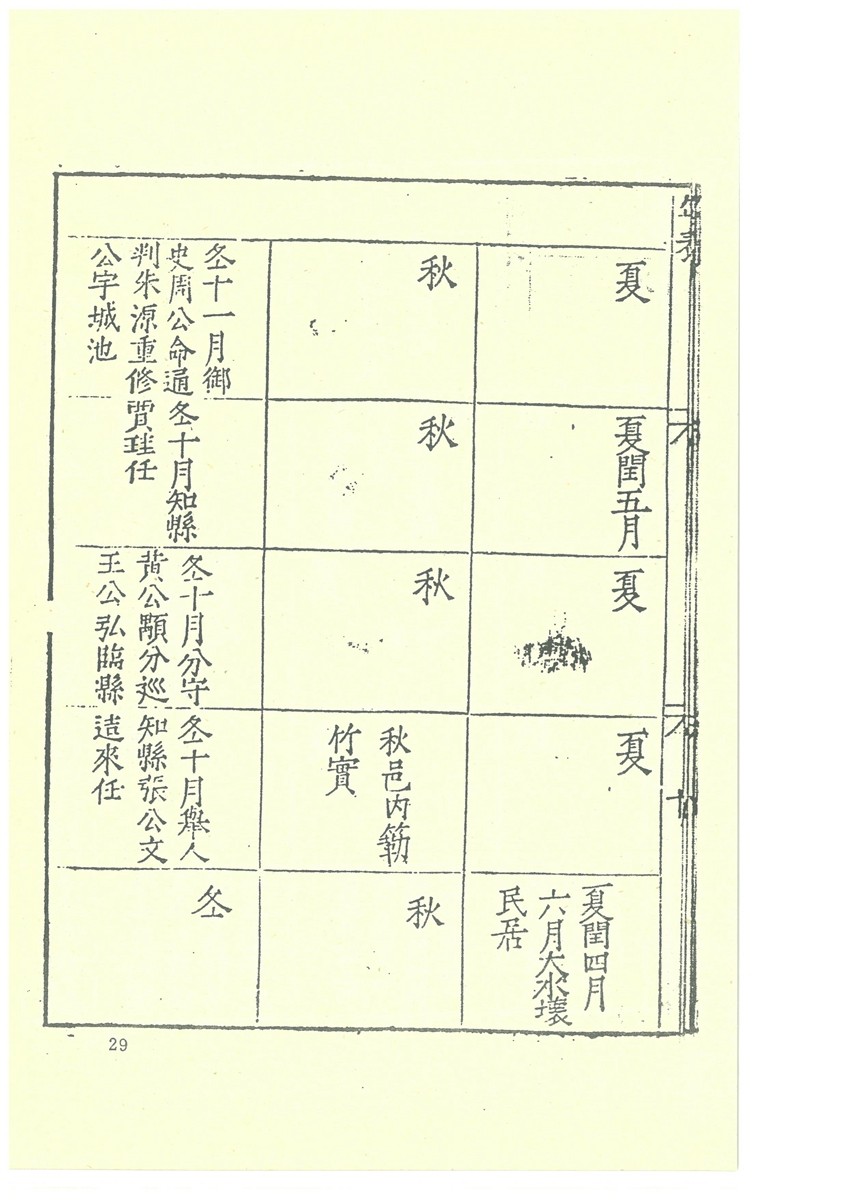 夏
夏閏五月
夏
夏
夏閏四月
六月大水壞
民居
秋
秋
秋
秋邑內簕
竹實
秋
冬十一月御
史周公命通
判朱源重修
公宇城池
冬十月知縣
賈珪任
冬十月分守
黃公顒分巡
王公弘臨縣
冬十月舉人
知縣張公文
造來任
冬
29